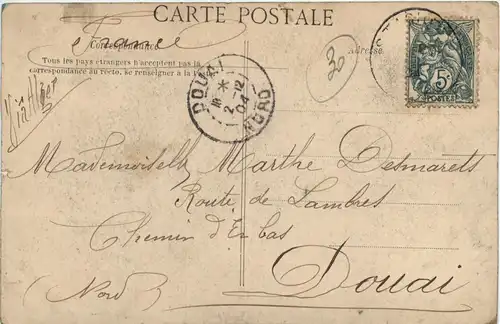 CARTE POSTALE
France
Correspondance
Adresse
Tous les pays étrangers n'acceptent pas la
correspondance au recto, se renseigner à la Poste
30
DOUAI
2 - 12
04
NORD
5c
POSTES
Via Alger
Mademoiselle Marthe Desmarets
Route de Lambres
Chemin d'En bas
Douai
(Nord)